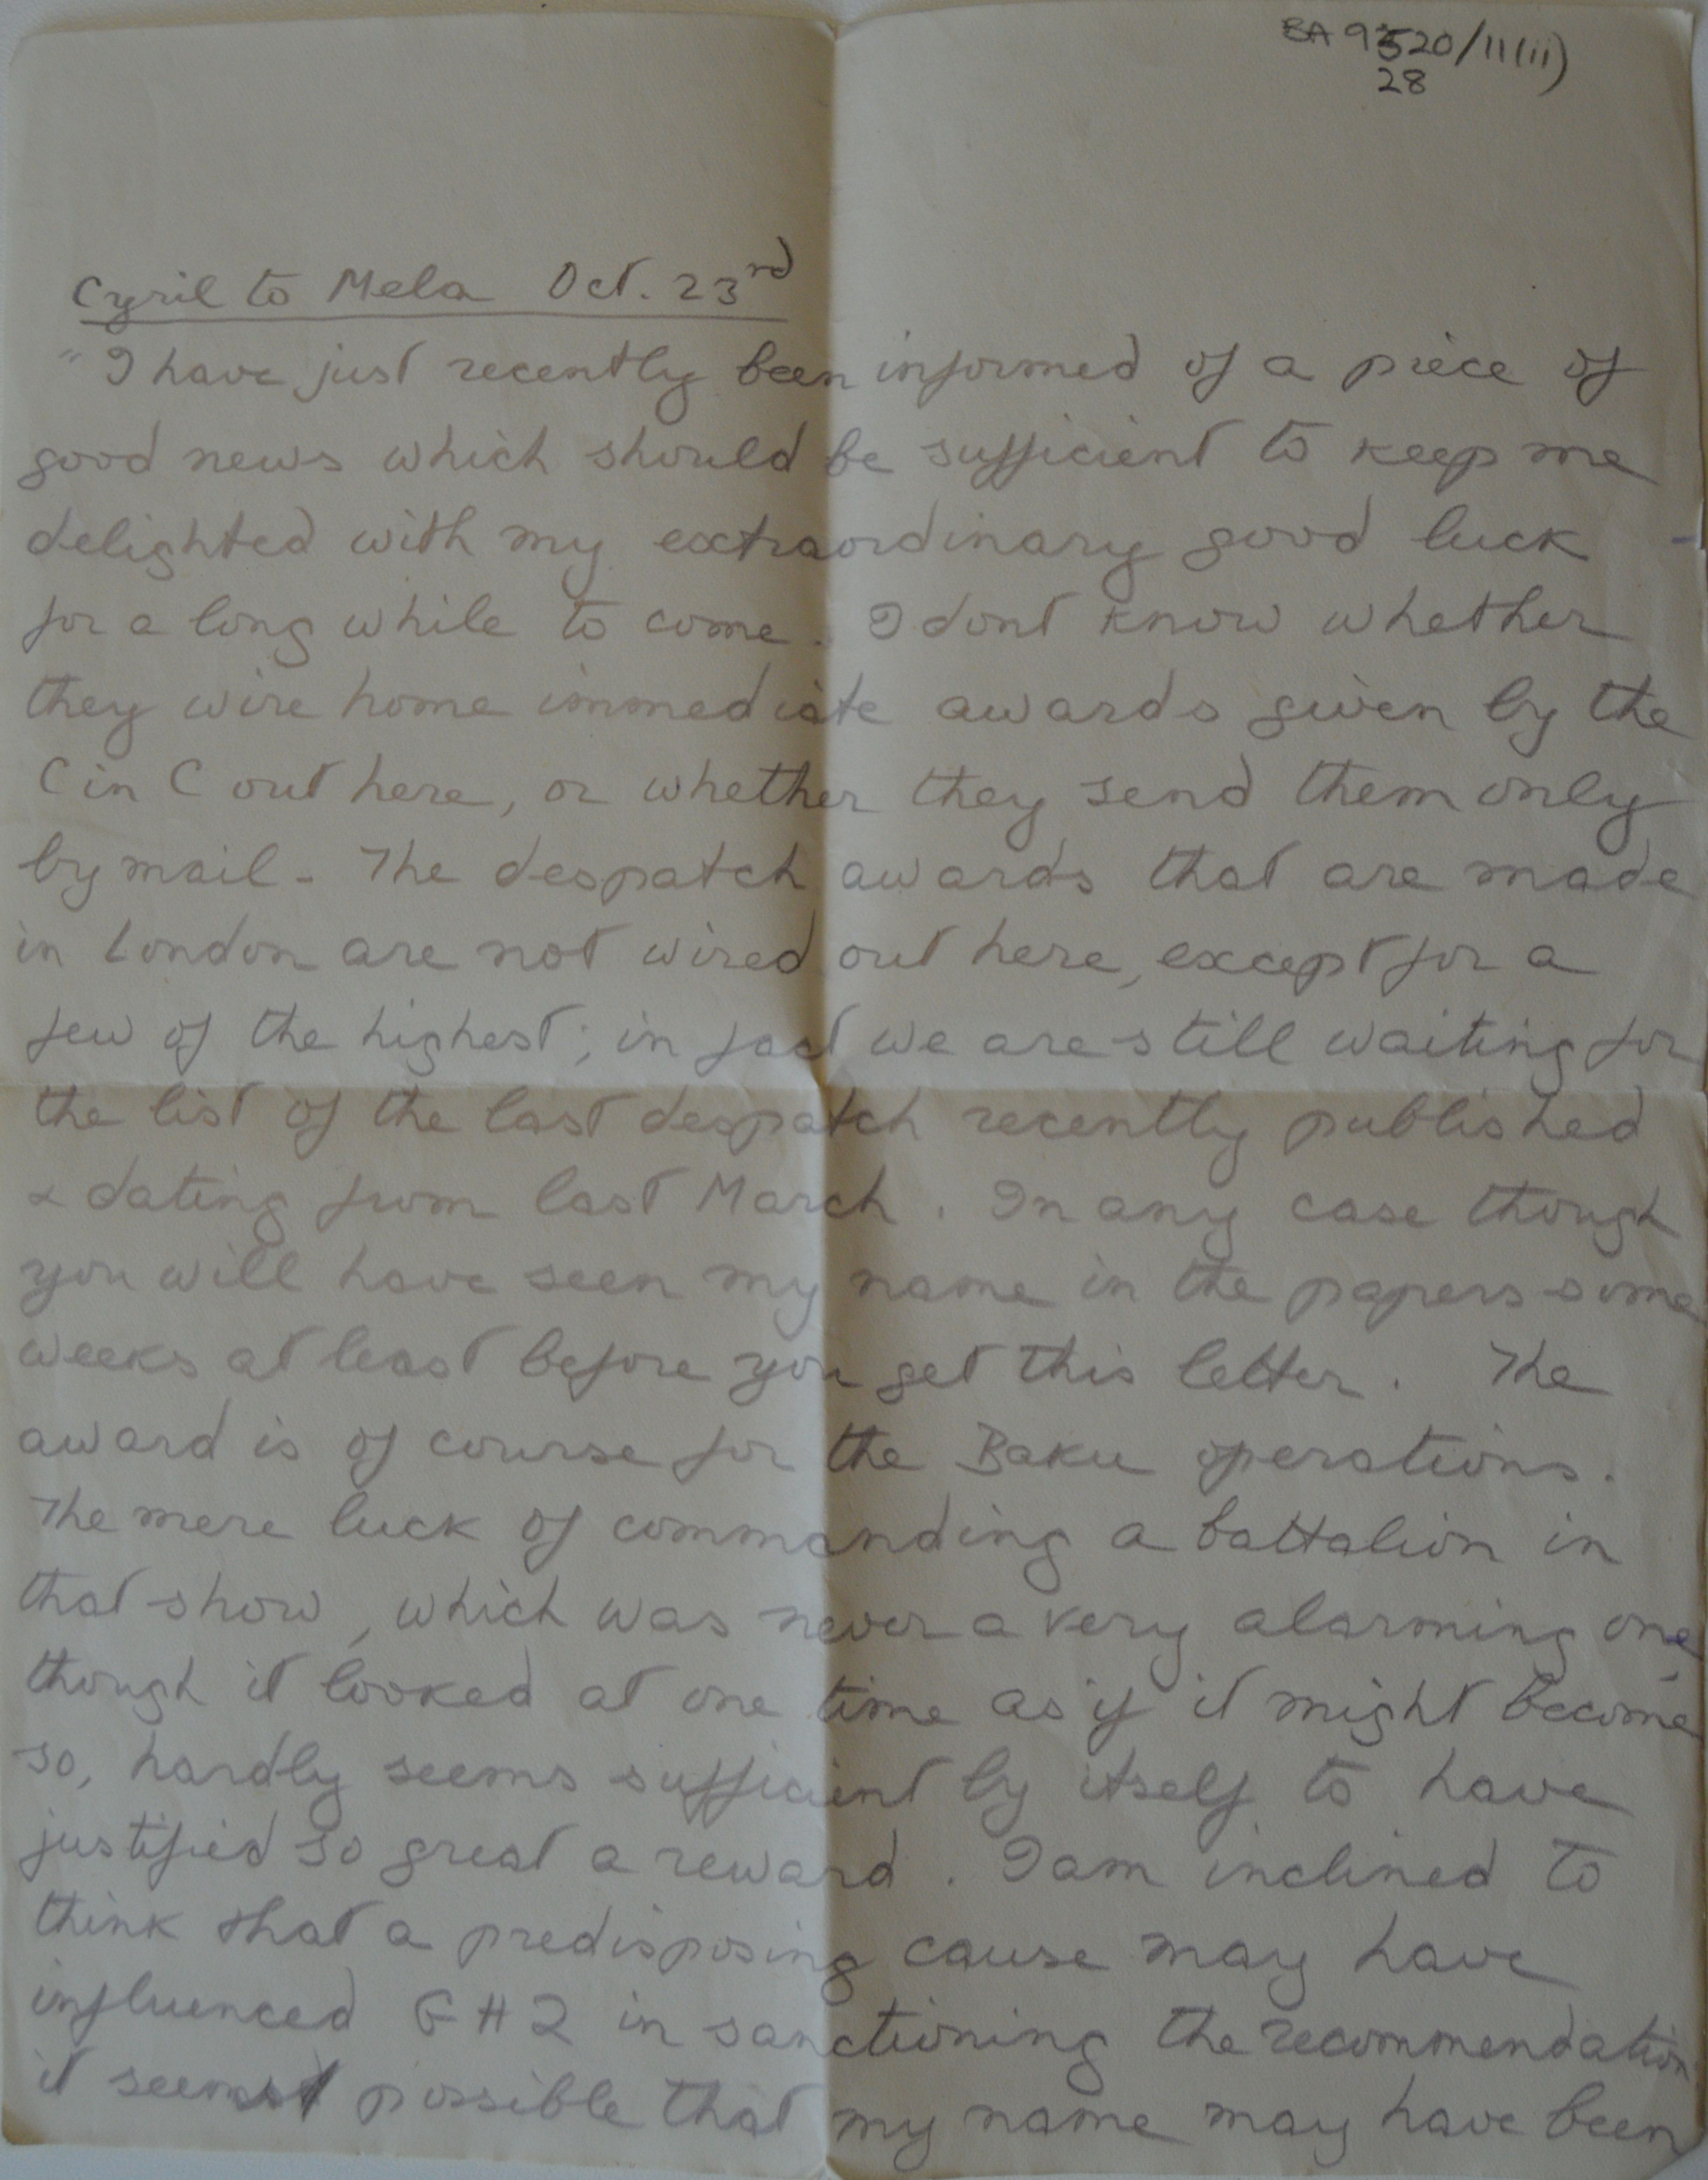 BA 9520/11(ii)
28
Cyril to Mela Oct. 23rd
"I have just recently been informed of a piece of
good news which should be sufficient to keep me
delighted with my extraordinary good luck
for a long while to come. I dont know whether
they wire home immediate awards given by the
C in C out here, or whether they send them only
by mail - The despatch awards that are made
in London are not wired out here, except for a
few of the highest; in fact we are still waiting for
the list of the last despatch recently published
& dating from last March. In any case though
you will have seen my name in the papers some
weeks at least before you get this letter. The
award is of course for the Baku operations.
The mere luck of commanding a battalion in
that show, which was never a very alarming one,
though it looked at one time as if it might become
so, hardly seems sufficient by itself to have
justified so great a reward. I am inclined to
think that a predisposing cause may have
influenced GHQ in sanctioning the recommendation
it seems possible that my name may have been